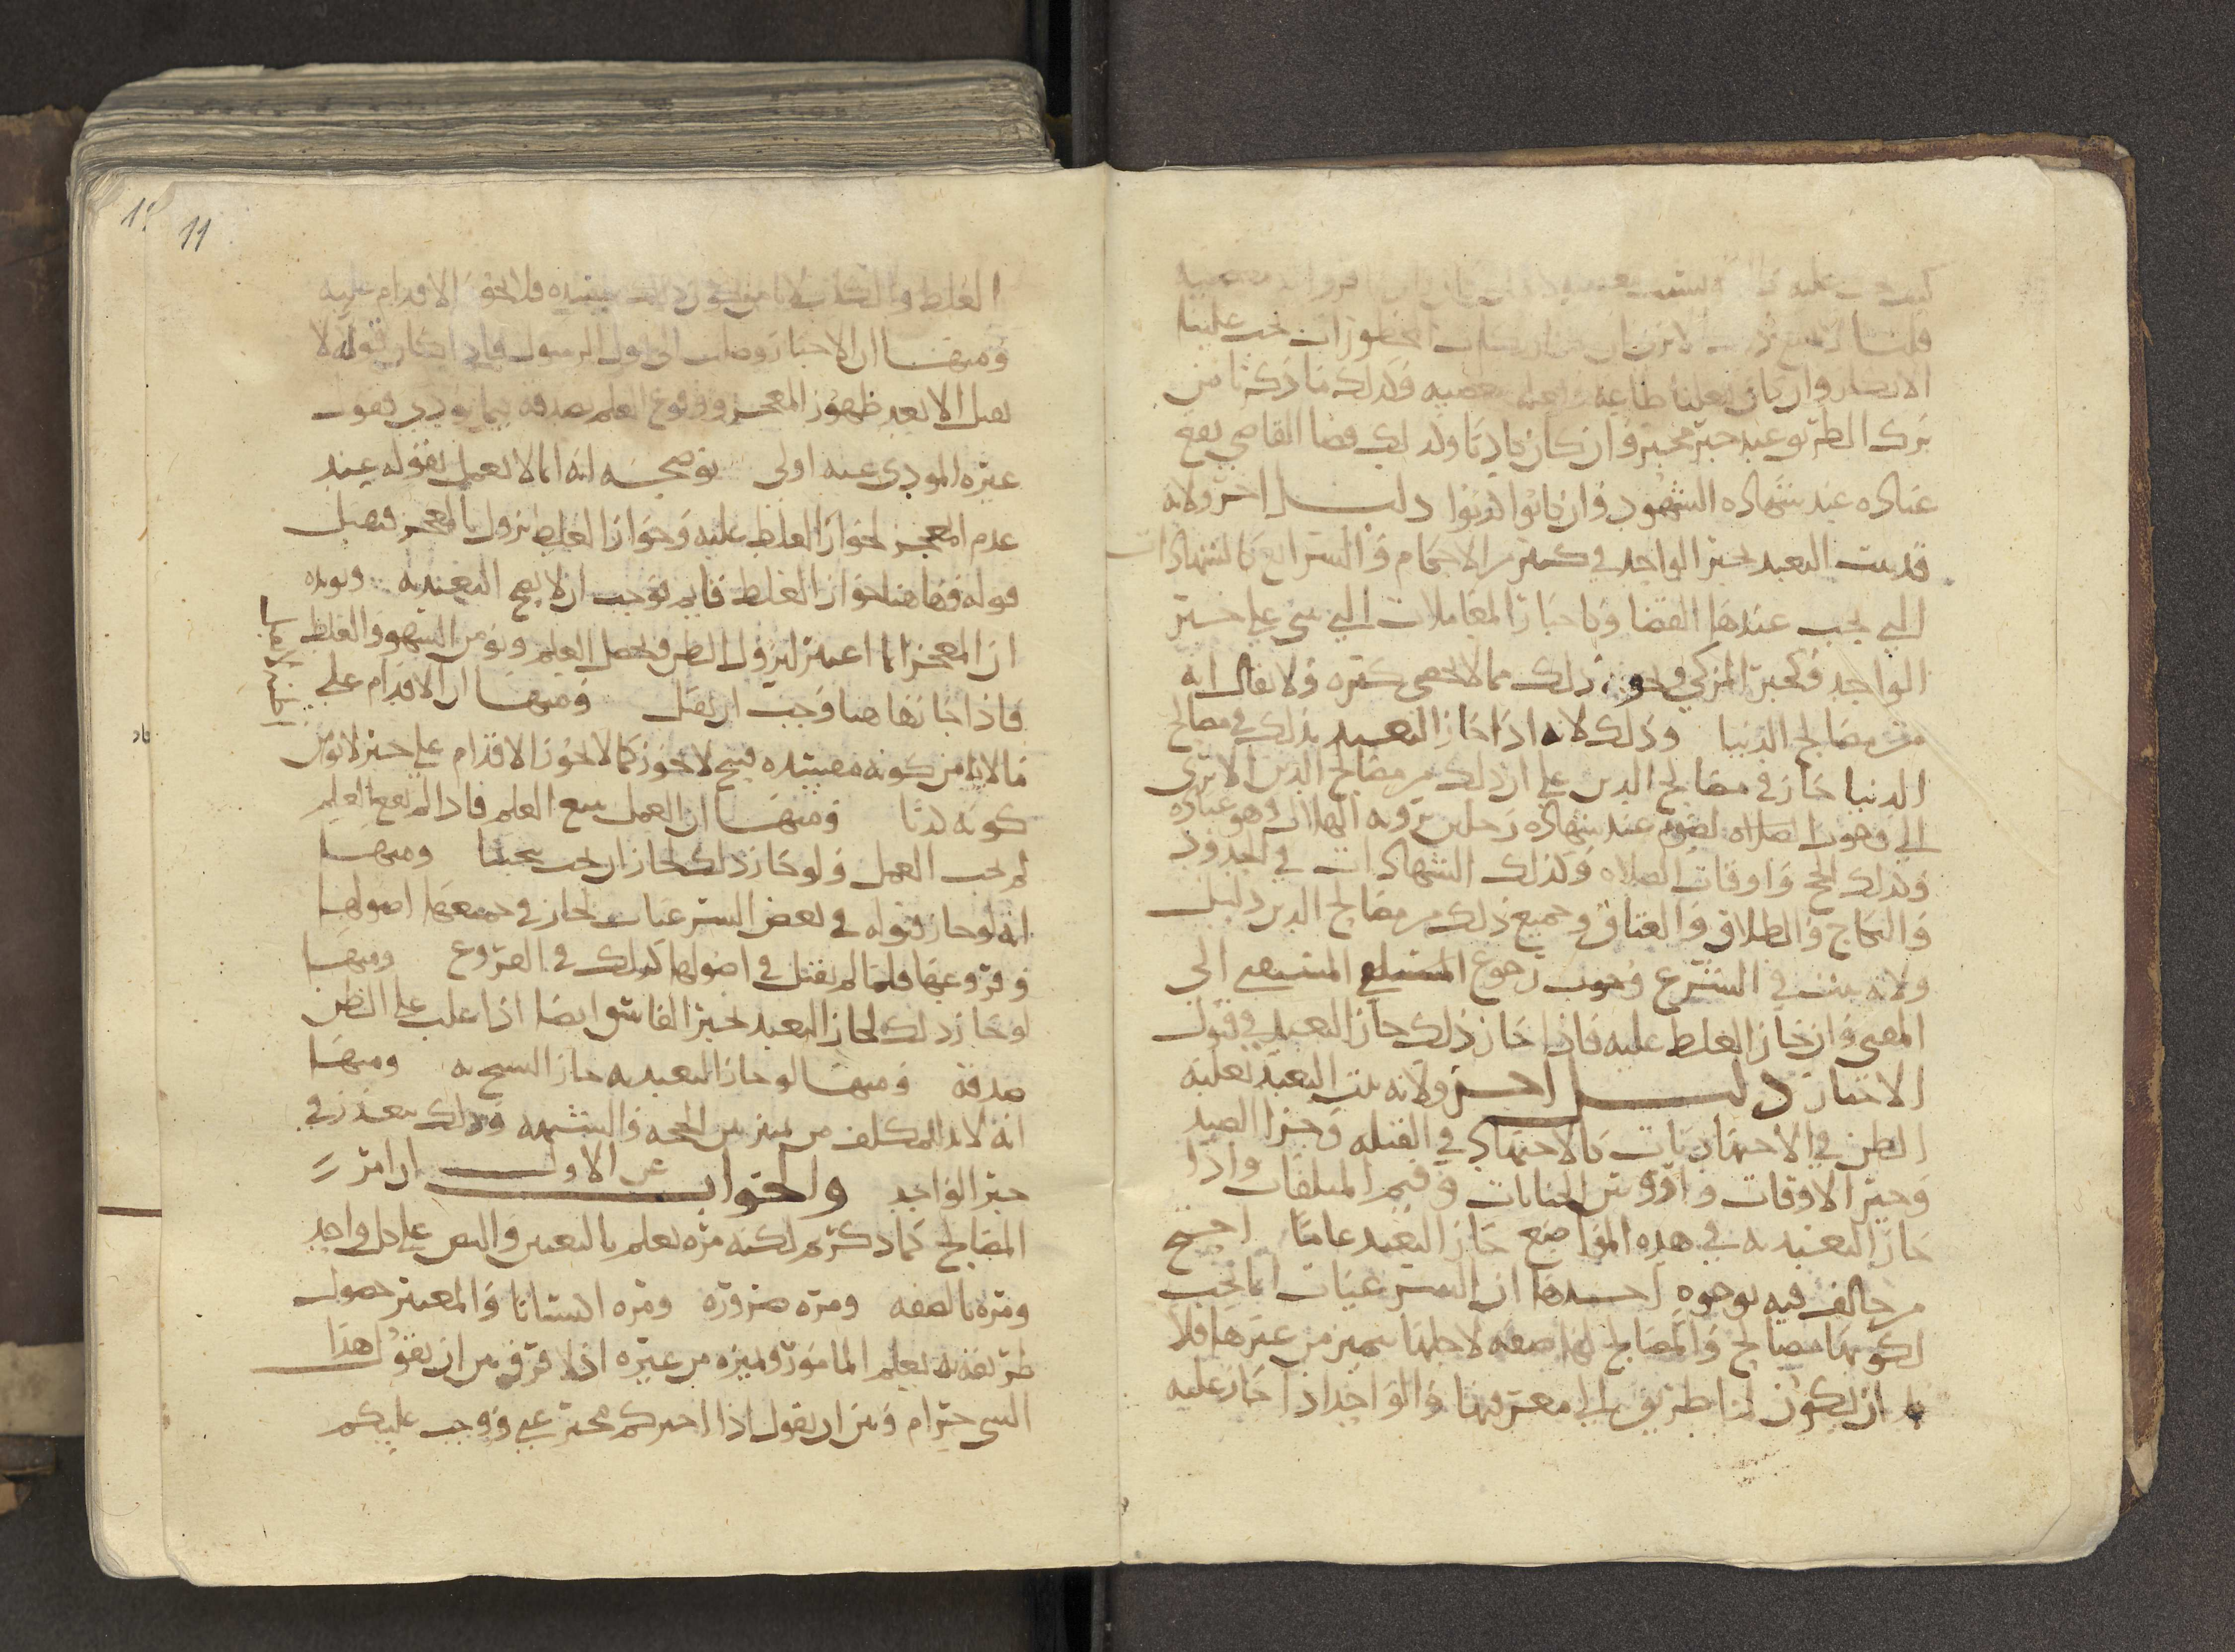 قلنا
الانكار وان كان فعلنا طاعة وفعله معصيه وكذلك ما ذكرنا من
ترك الطريق عند خبر مخبر وان كان كاذبا وكذلك قضا القاضي يقع
عباده عند شهاده الشهود وان كانوا كذبوا دليل اخر ولانه
قد ثبت التعبد بخبر الواحد في كثير من الاحكام والشرايع كالشهادات
التي يجب عندها القضا وكاخبار المعاملات التي تبنى على خبر
الواحد وكخبر المزكي ونحو ذلك مما لا يحصى كثره ولا يقال انه
من مصالح الدنيا وذلك لانه اذا جاز التعبد بذلك في مصالح
الدنيا جاز في مصالح الدين على ان ذلك من مصالح الدين الا ترى
الى وجوب الصلاه والصوم عند شهاده رجلين برويه الهلال وهو عباده
وكذلك الحج واوقات الصلاه وكذلك الشهادات في الحدود
والنكاح والطلاق والعتاق وجميع ذلك من مصالح الدين دليل
ولانه يثبت في الشرع وجوب رجوع المستفتي الى
المفتي وان جاز الغلط عليه فاذا جاز ذلك جاز التعبد في قبول
الاخبار دليل اخر ولانه ثبت التعبد بغلبه
الظن في الاجتهاديات كالاجتهاد في القبله وجزا الصيد
وخبر الاوقات واروش الجنايات وقيم المتلفات واذا
جاز التعبد به في هذه المواضع جاز التعبد عاما احتج
من خالف فيه بوجوه احدها ان الشرعيات انما تجب
لكونها مصالح والمصالح لها صفه لاجلها تتميز من غيرها فلا
بد ان يكون لنا طريق الى معرفتها والواحد اذا جاز عليه
11
الغلط والكذب لا نامن في ذلك مفسده فلا يجوز الاقدام عليه
ومنها ان الاخبار وصلت الى قول الرسول فاذا كان قوله لا
يقبل الا بعد ظهور المعجز ووقوع العلم بصدقه فيما يودي فقول
غيره المودي عنه اولى توضيحه انه انما لا يعمل بقوله عند
عدم المعجز لجواز الغلط عليه وجواز الغلط يزول بالمعجز فيقبل
قوله فهاهنا جواز الغلط قايم فوجب ان لا يصح التعبد به ويويده
ان المعجز انما اعتبر ليزول الظن ويحصل العلم ويومن السهو والغلط
فاذا جاز هاهنا وجب ان يقبل ومنها ان الاقدام على
ما لا يامن كونه مفسده قبيح لا يجوز كما لا يجوز الاقدام على خبر لا يومن
كونه كذبا ومنها ان العمل يتبع العلم فاذا لم يقع العلم
لم يجب العمل ولو جاز ذلك لجاز ان يجب تبخيتا ومنها
انه لو جاز قبوله في بعض الشرعيات لجاز في جميعها اصولها
وفروعها فلما لم يقبل في اصولها كذلك في الفروع ومنها
لو جاز ذلك لجاز التعبد بخبر الفاسق ايضا اذا غلب على الظن
صدقه ومنها لو جاز التعبد به جاز النسخ به ومنها
انه لا بد للمكلف من تمييز بين الحجه والشبهه وذلك يتعذر في
خبر الواحد والجواب عن الاول ان امر
المصالح كما ذكرتم لكنه مره يعلم بالتعيين والنص على كل واحد
ومره بالصفه ومره ضروره ومره اكتسابا والمعتبر حصول
طريقه به يعلم المامور ويميزه من غيره اذ لا فرق بين ان يقول هذا
الشي حرام وبين ان يقول اذا اخبركم مخبر عني ووجب عليكم